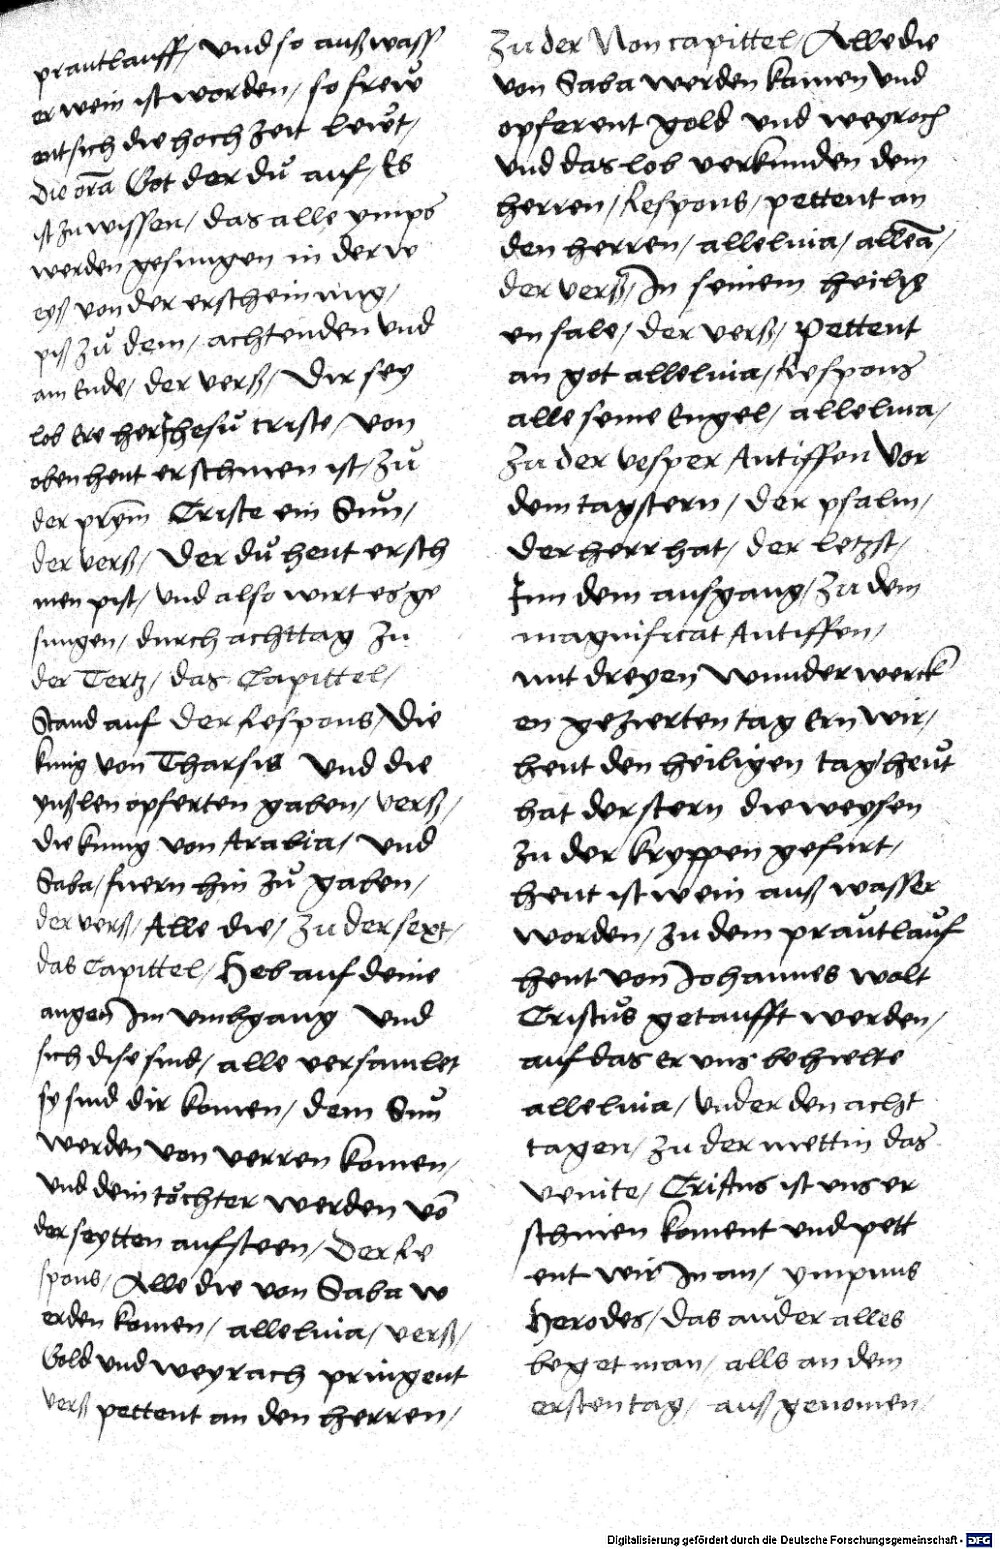 prautlauff / vnd so auß wasß
er wein ist worden / so frew
ent sich die hochzeit lewt /
die orā Got der dů auf / Es
ist zu wissen / das alle ymps
werden gesungen in der w
eyß von der erscheinung /
piß zů dem / achtenden vnd
am Ende / der verß / Dir sey
lob Ere her Jhesů criste / von
oben heut erschinen ist / zů
der prym̄ Criste ein Sun /
der verß / der dů heut ersch
inen pist / vnd also wirt es ge
sungen / durch achttag zu
der Tertz / das Capittel /
Stand auf der Respons / Die
kunig von Tharsis vnd die
ynßlen opferten gaben / verß /
die kunig von Arabia / vnd
Saba / fuern hin zů gaben /
der verß / Alle die / zu der sext /
das Capittel / Heb auf deine
augen Im vmbgang vnd
sich dise sind / alle versamlet
sy sind dir komen / dem Sun
werden von verren komen /
vnd dein töchter werden vō
der seytten aufsteen / der Re
spons / Alle die von Saba w
erden komen / alleluia / verß /
Gold vnd weyrach pringent
verß pettent an den herren /
Zu der Non capittel / Alle die
von Saba werden kamen vnd
opferent gold vnd weyroch
vnd das lob verkunden dem
herren / Respons / pettent an
den herren / alleluia / alleā /
der verß / In seinem heilig
en sale / der verß / pettent
an got alleluia / Respons
alle seine Engel / alleluia /
zu der vesper Antiffen vor
dem tagstern / der psalm /
der herr hat / der letzst /
Inn dem aufgang / zu dem
magnificat Antiffen /
mit dreyen wunderwerck
en gezierten tag Ern wir /
heut den heiligen tag heůt
hat der stern die weysen
zu der kryppen gefurt /
heut ist wein auß wasser
worden / zu dem prautlauf
heut von Johannes wolt
Cristůs getaufft werden /
auf das Er vns behielte
alleluia / vnder den acht
tagen / zu der mettin das
venite / Cristus ist vns er
schinen koment vnd pett
ent wir In an / ympnus
Herodes / das ander alles
beget man / alls an dem
ersten tag / auß genomen /
Digitalisierung gefördert durch die Deutsche Forschungsgemeinschaft - DFG